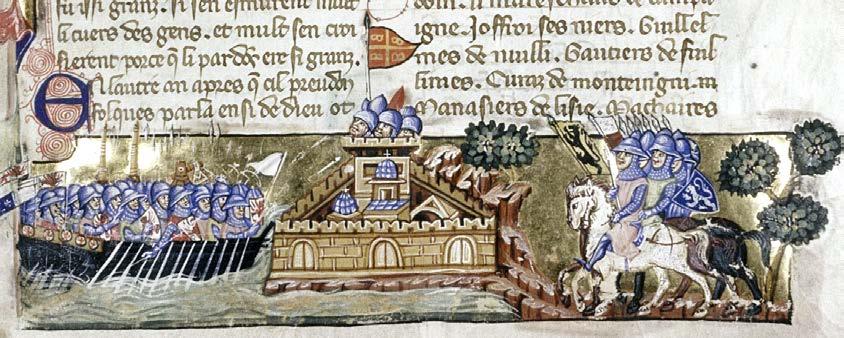 fu issi granz. si sen esmurent mult
li cuers des gens. et mult sen croi
sierent por ce q̄ li pardōs ere si granz.
En lautre an apres q̄ cil preudon
folques parla ensi de dieu ot
li mareschaus de campa
igne Joffroi ses niers. Guillel
mes de nuilli. Gautiers de fuil
limes. Curaz de monteingni. m
Manasiers de lisle. Machaires